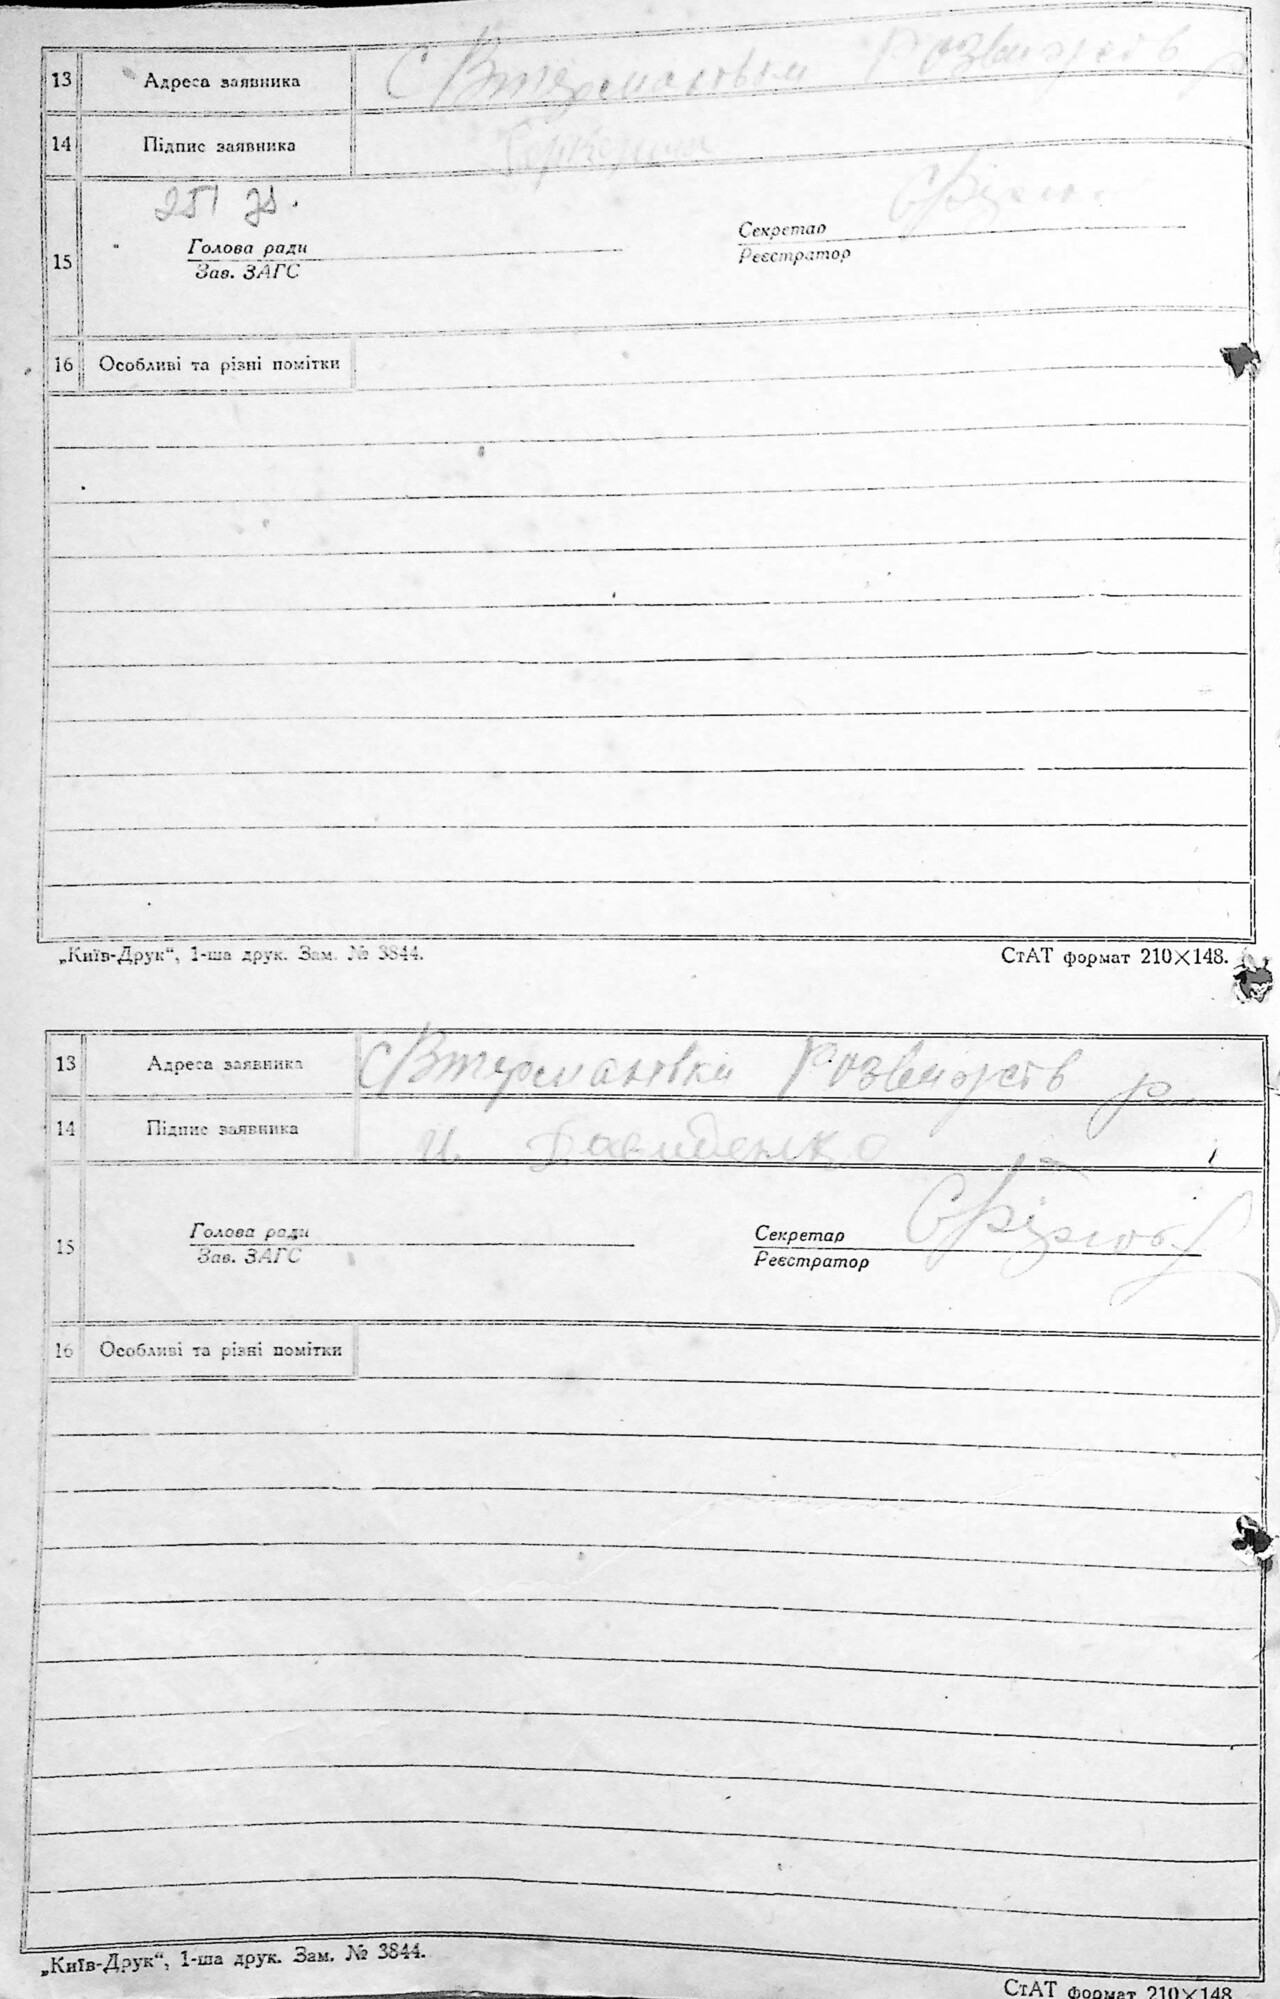 13 Адреса заявника С Втермановки Розвожєв р
14 Підпис заявника
251 зв.
Голова ради Секретар
15 Зав. ЗАГС Реєстратор
16 Особливі та різні помітки
„Київ-Друк“, 1-ша друк. Зам. № 3844. СтАТ формат 210×148.
13 Адреса заявника С Втермановки р
14 Підпис заявника и Давиденко
Голова ради Секретар
15 Зав. ЗАГС Реєстратор
16 Особливі та різні помітки
„Київ-Друк“, 1-ша друк. Зам. № 3844.
СтАТ формат 210×148.